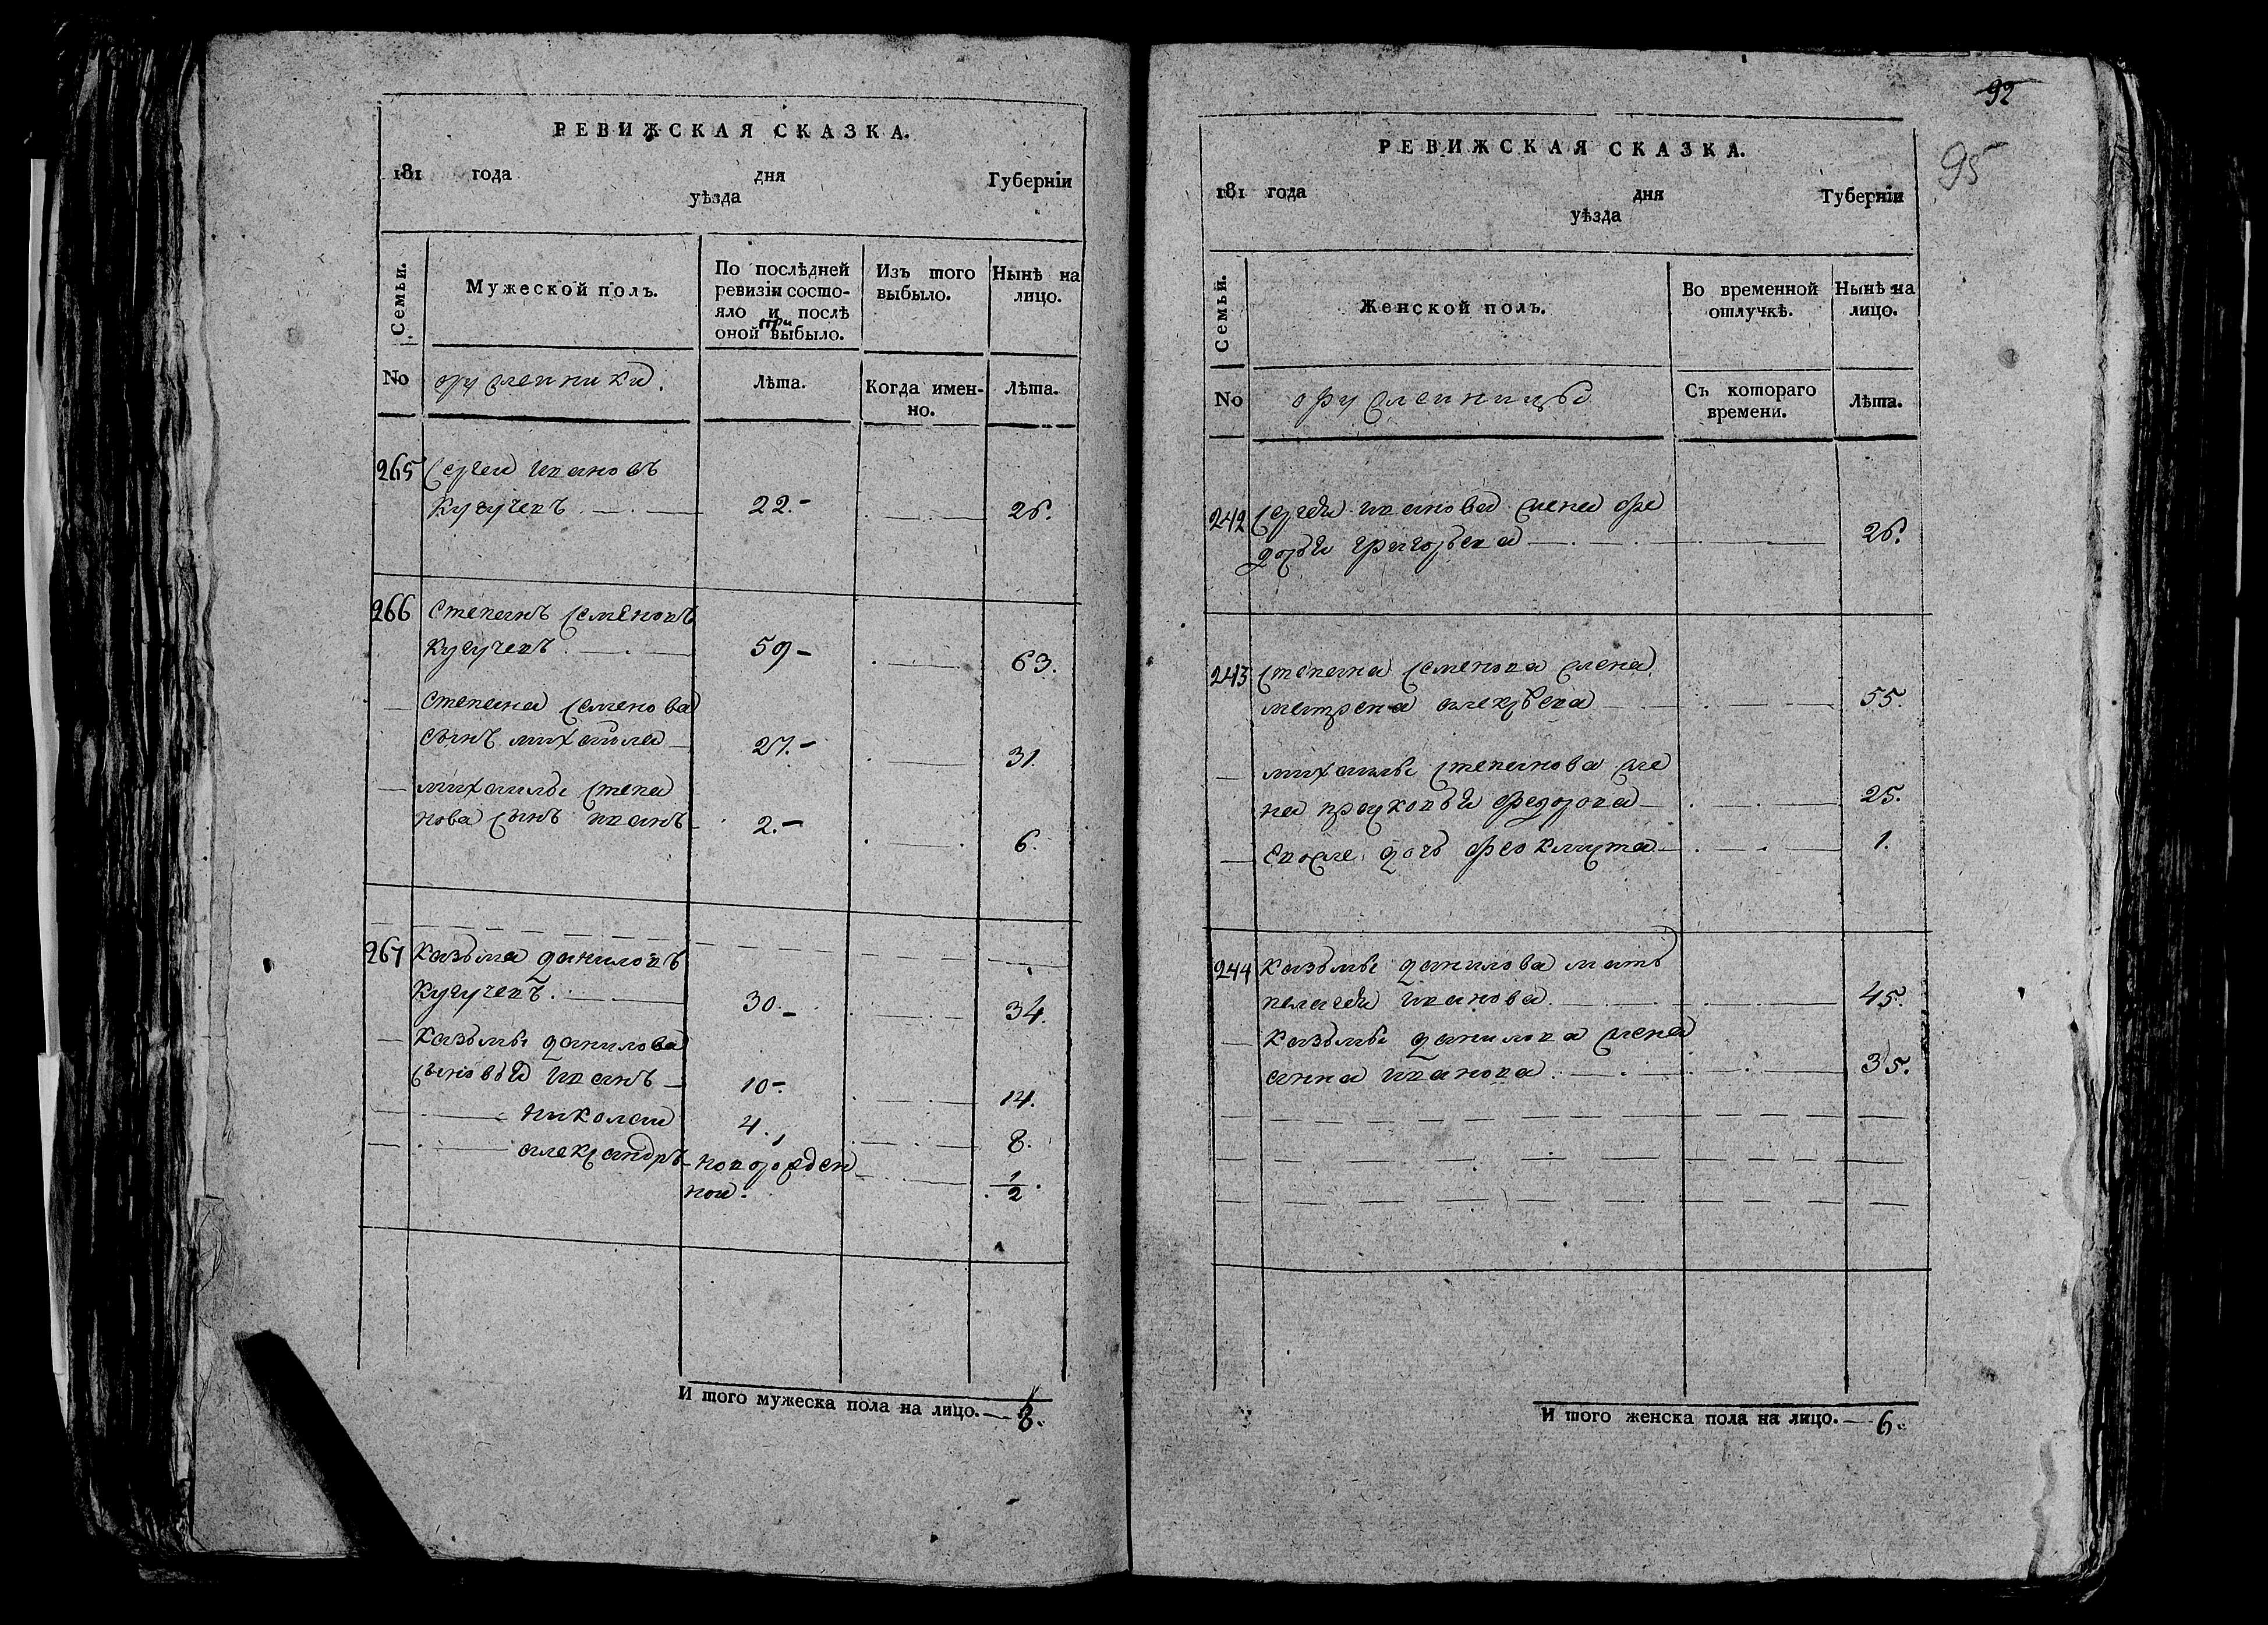 РЕВИЖСКАЯ СКАЗКА.
181 года дня Губерніи
уѣзда
Семьи.
Мужеской полъ.
По послѣдней
ревизіи состо-
яло и послѣ
при
оной выбыло.
Изъ того
выбыло.
Нынѣ на
лицо.
No
Лѣта.
Когда имен-
но.
Лѣта.
265 Сергеи ивановъ
Кугучевъ 22.- 26.
266 Степанъ Семеновъ
Кугучевъ 59- 63.
Степана Семенова
сынъ михаила 27.- 31.
михаилы Степа
нова сынъ иванъ 2.- 6.
267 Казьма даниловъ
Кугучевъ. 30.- 34.
Казьмы данилова
сыновья иванъ 10- 14.
николаи 4. 8.
александръ новорожден
нои. 1/2.
И того мужеска пола на лицо.—8.
92
95
РЕВИЖСКАЯ СКАЗКА.
181 года дня Губерніи
уѣзда
Семьи.
Женской полъ.
Во временной
отлучкѣ.
Нынѣ на
лицо.
No
Съ котораго
времени.
Лѣта.
242 Сергея иванова жена фе
дорья григорьева 26.
243 Степана Семенова жена
матрена 55.
михаилы Степанова же
на прасковья федорова 25.
евосле дочь феоклиста 1.
244 Казьмы данилова мать
пелагея иванова 45.
Казьмы данилова жена
анна иванова. 35.
И того женска пола на лицо.—6.